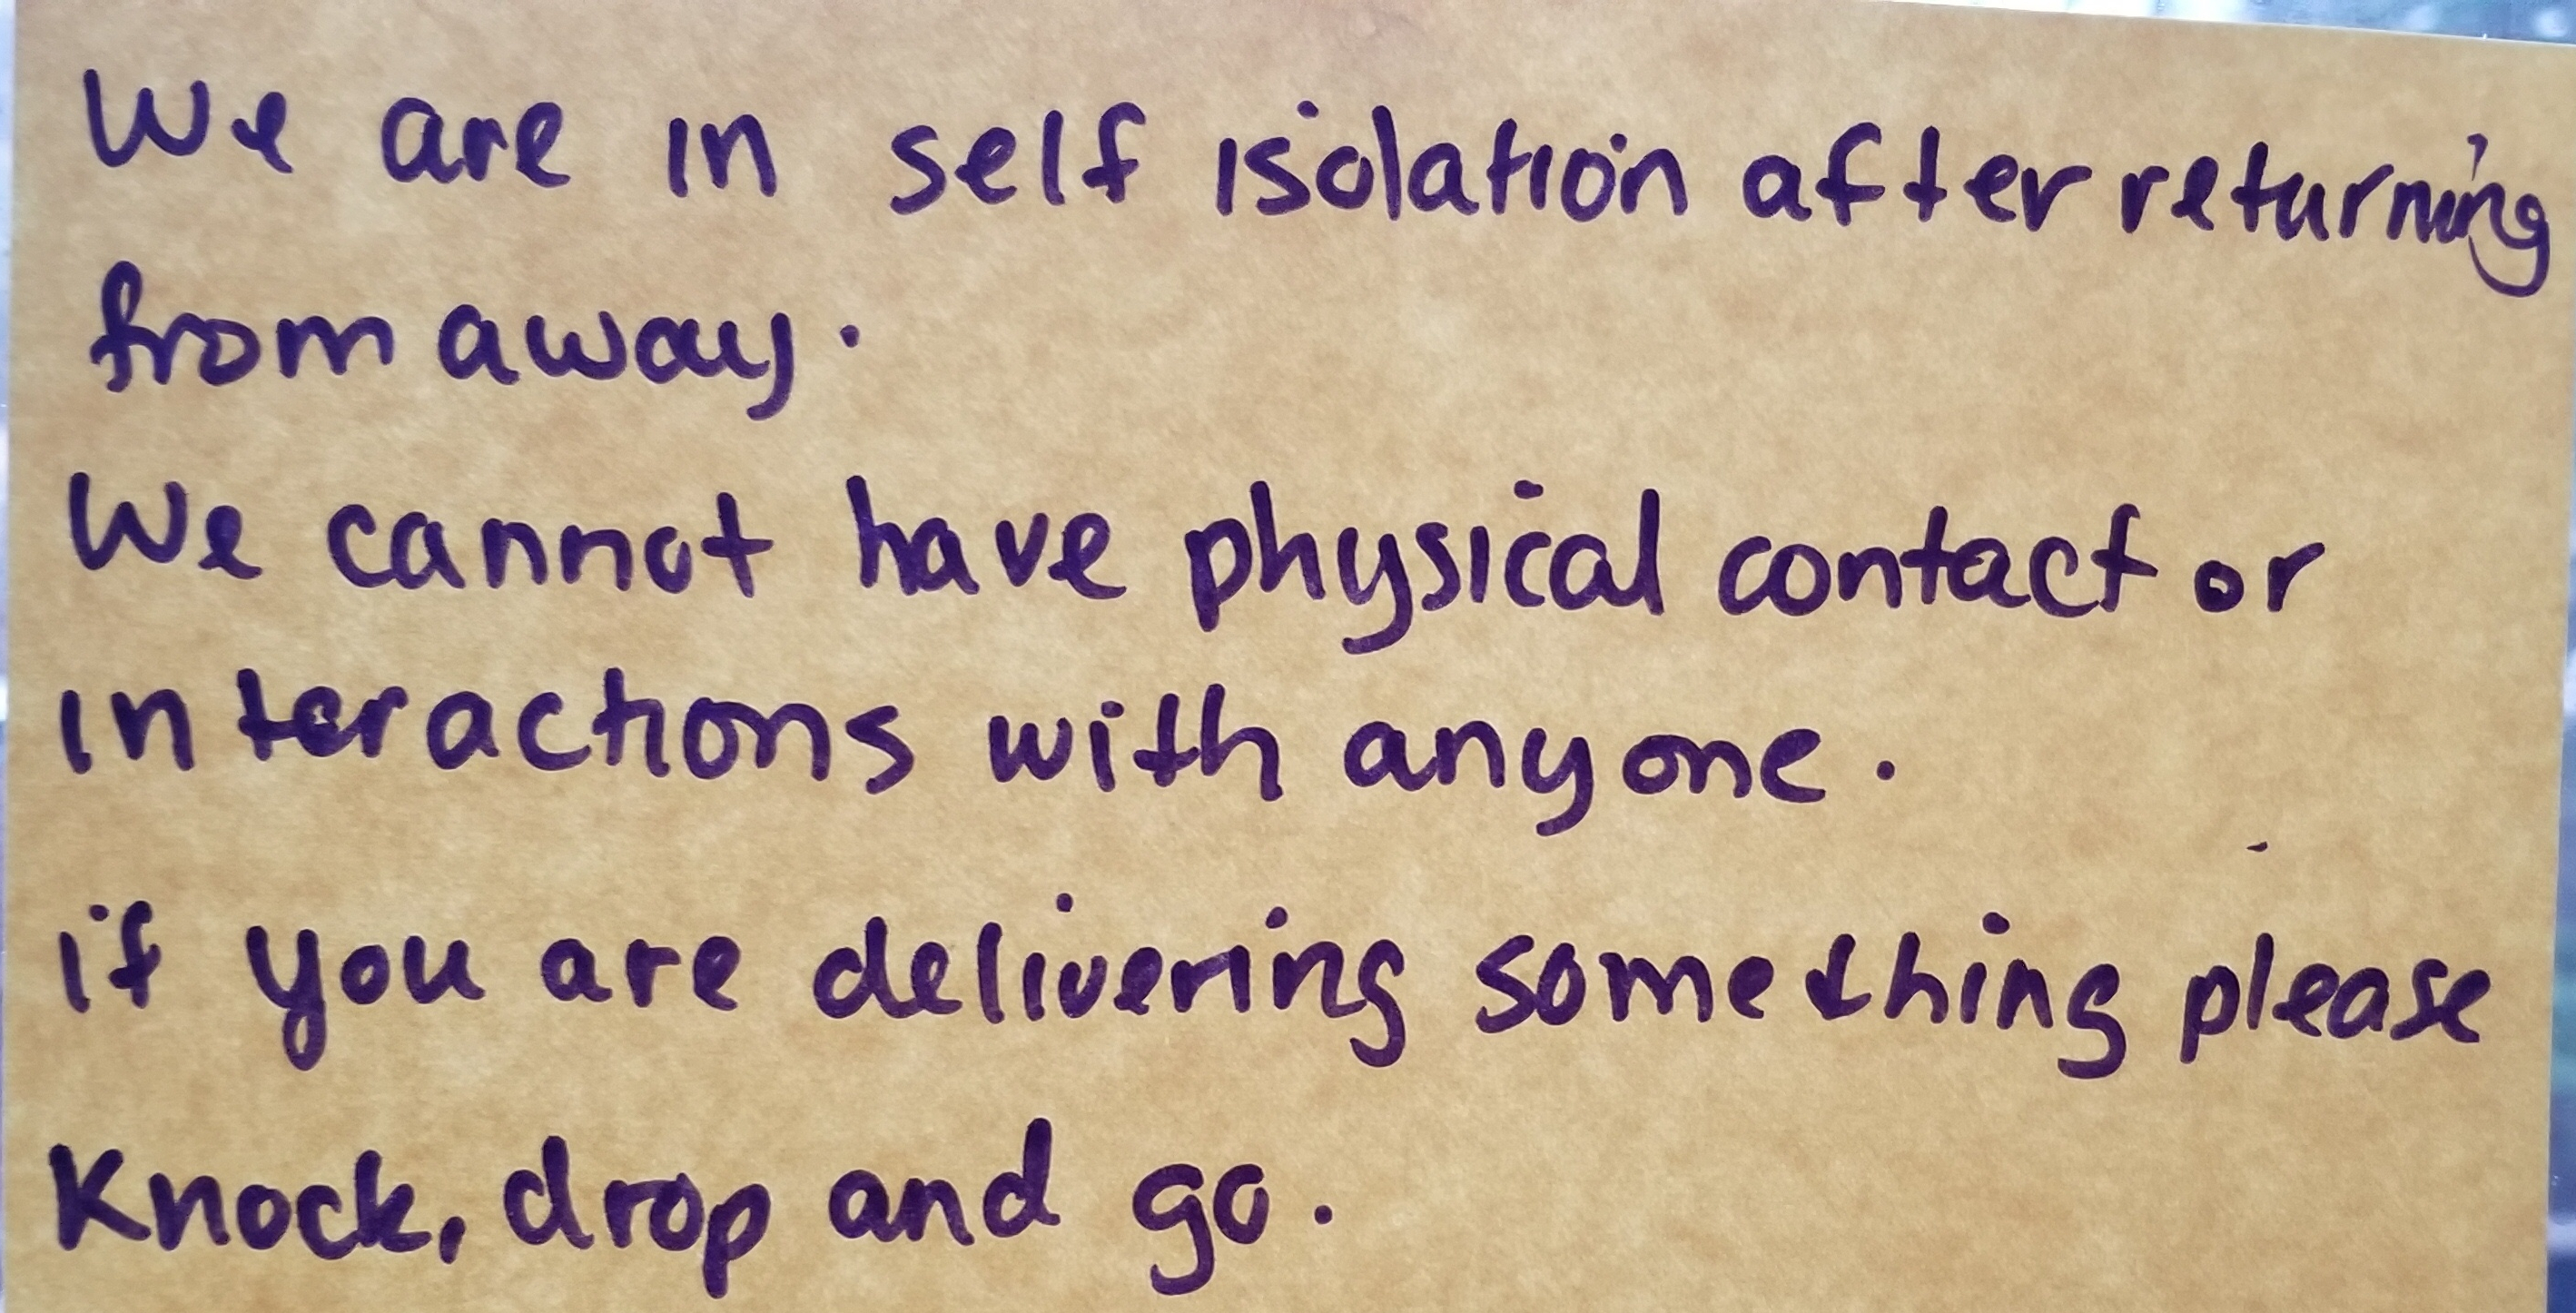 We are in self isolation after returning
from away.
We cannot have physical contact or
interactions with anyone.
if you are delivering something please
Knock, drop and go.